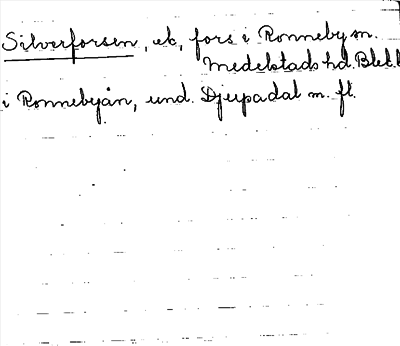 Silverforsen, ek, fors i Ronneby m.
Medelstads hd. Blek.l
i Ronnebyån, und. Djupadal m. fl.